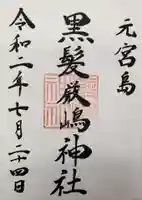 元宮島
黒髪厳嶋神社
令和二年七月二十四日